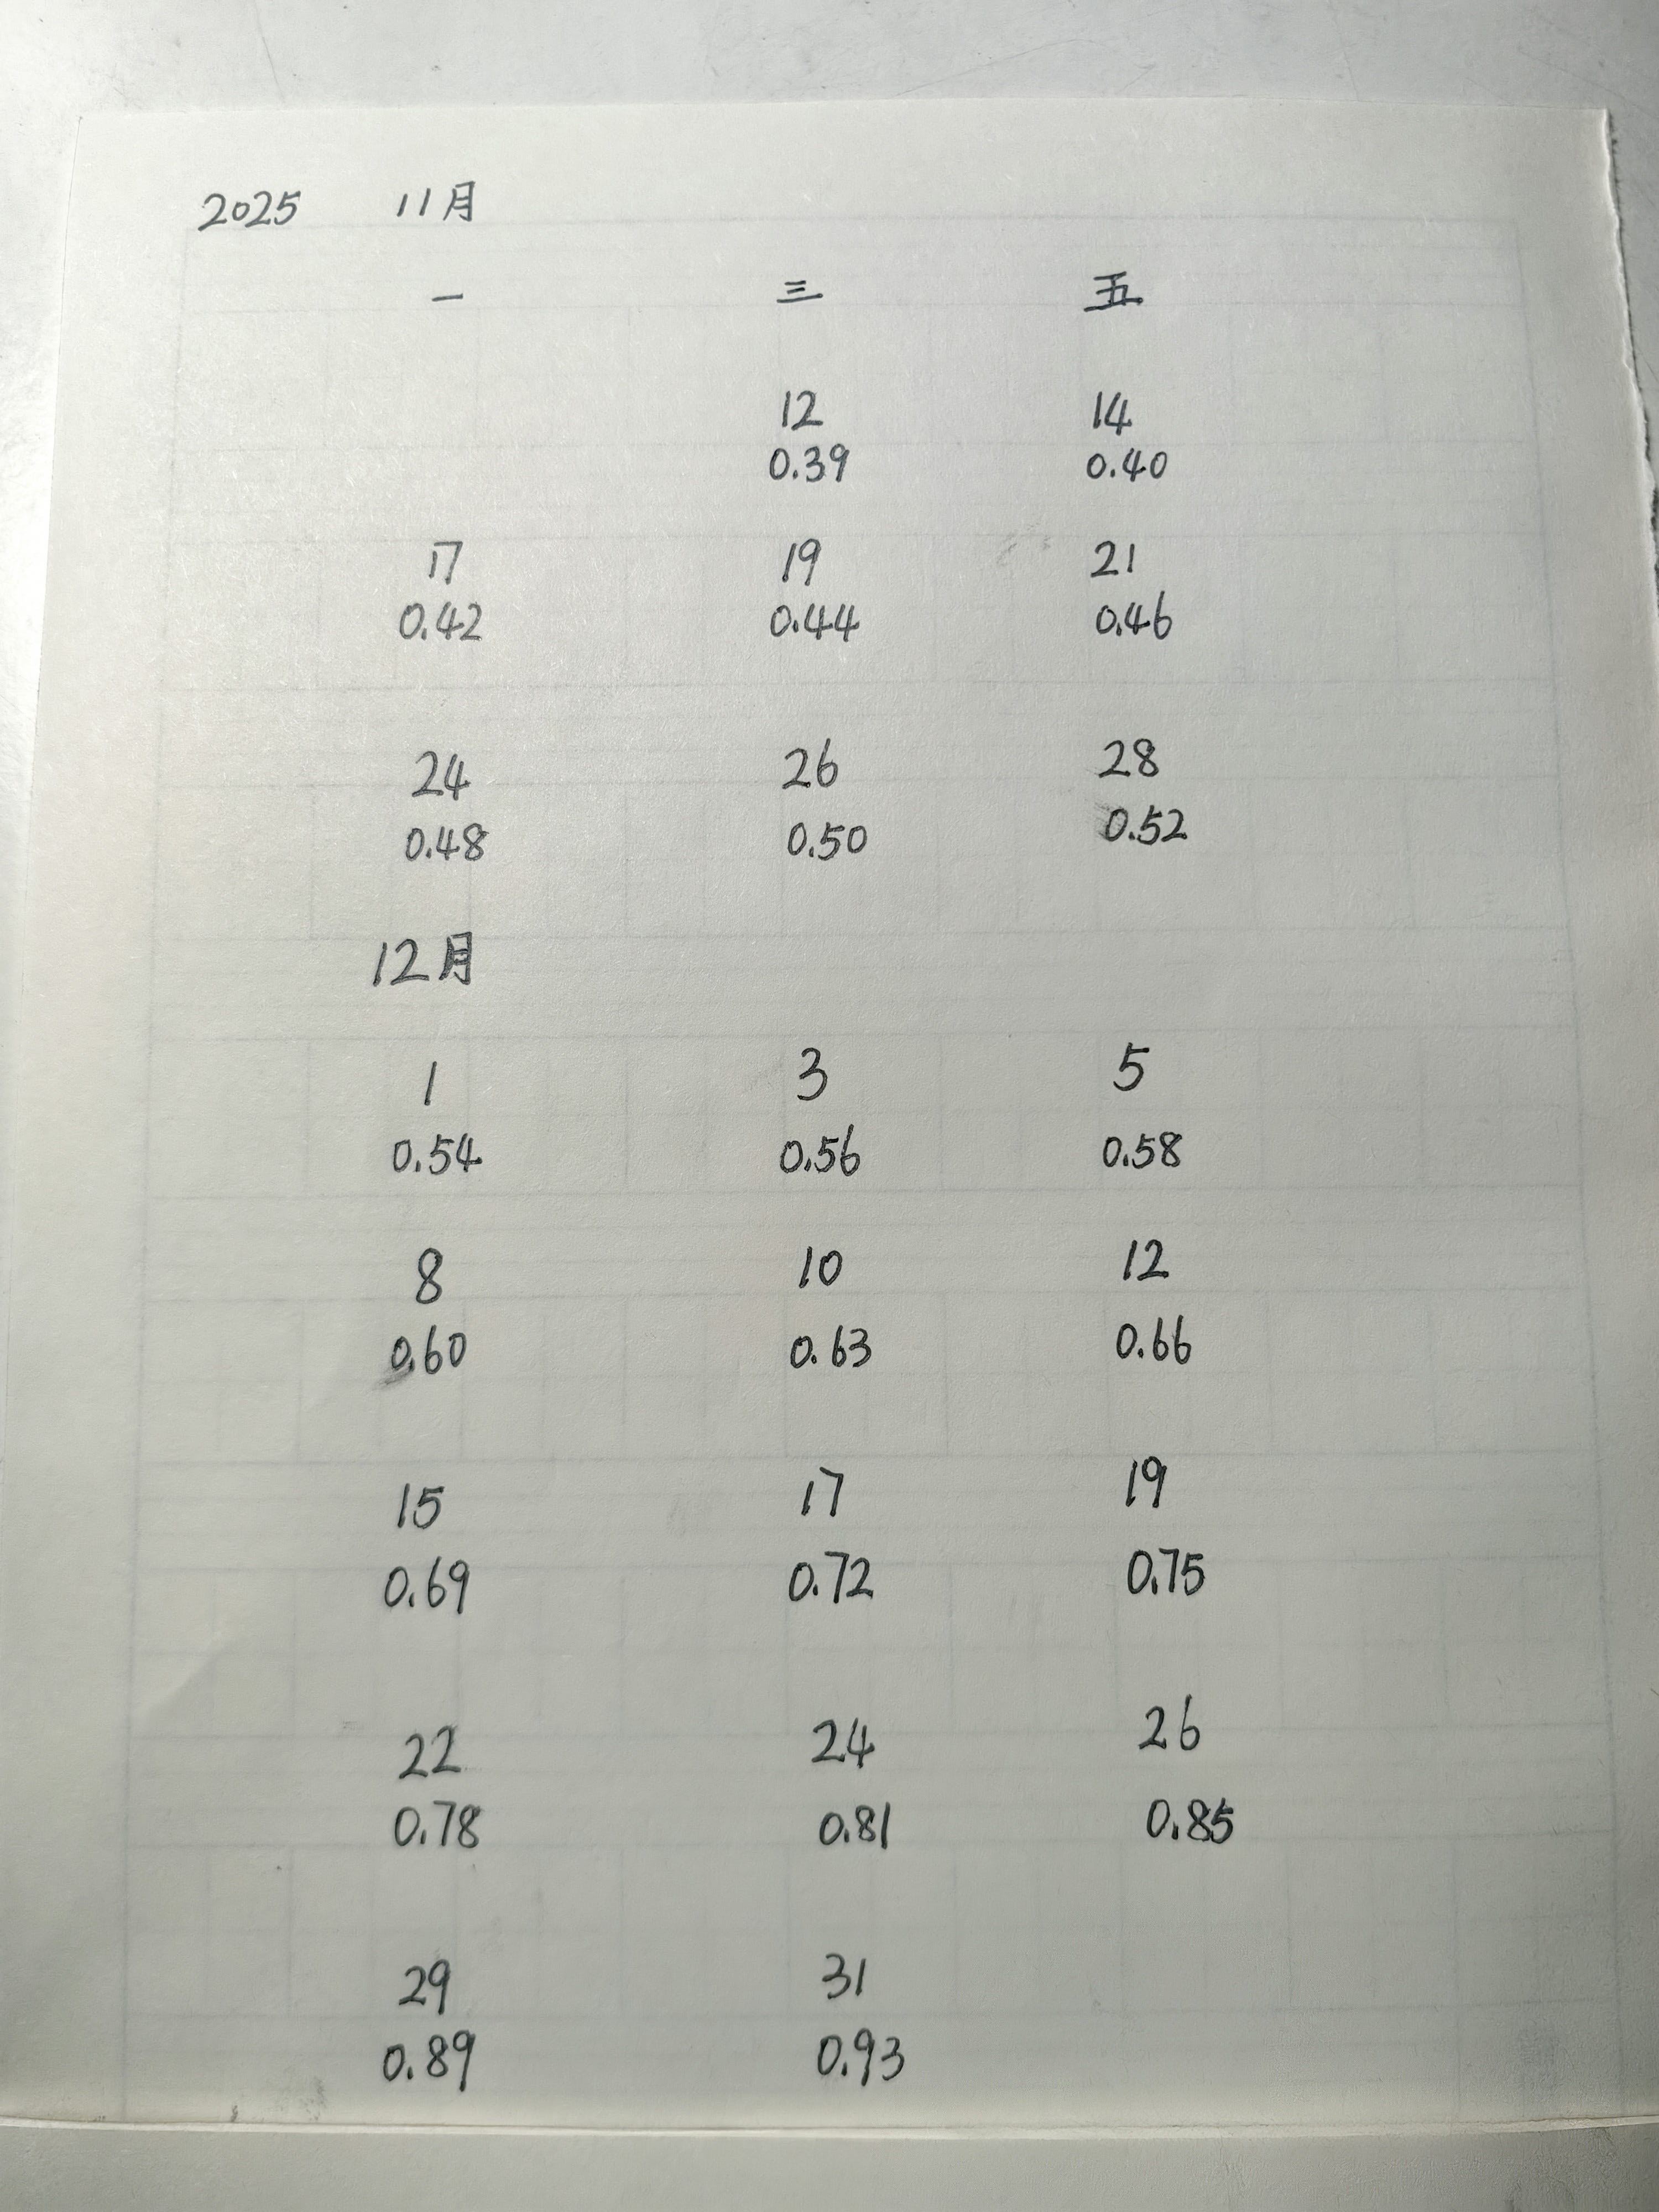 2025 11月
一 三 五
12 14
0.39 0.40
17 19 21
0.42 0.44 0.46
24 26 28
0.48 0.50 0.52
12月
1 3 5
0.54 0.56 0.58
8 10 12
0.60 0.63 0.66
15 17 19
0.69 0.72 0.75
22 24 26
0.78 0.81 0.85
29 31
0.89 0.93